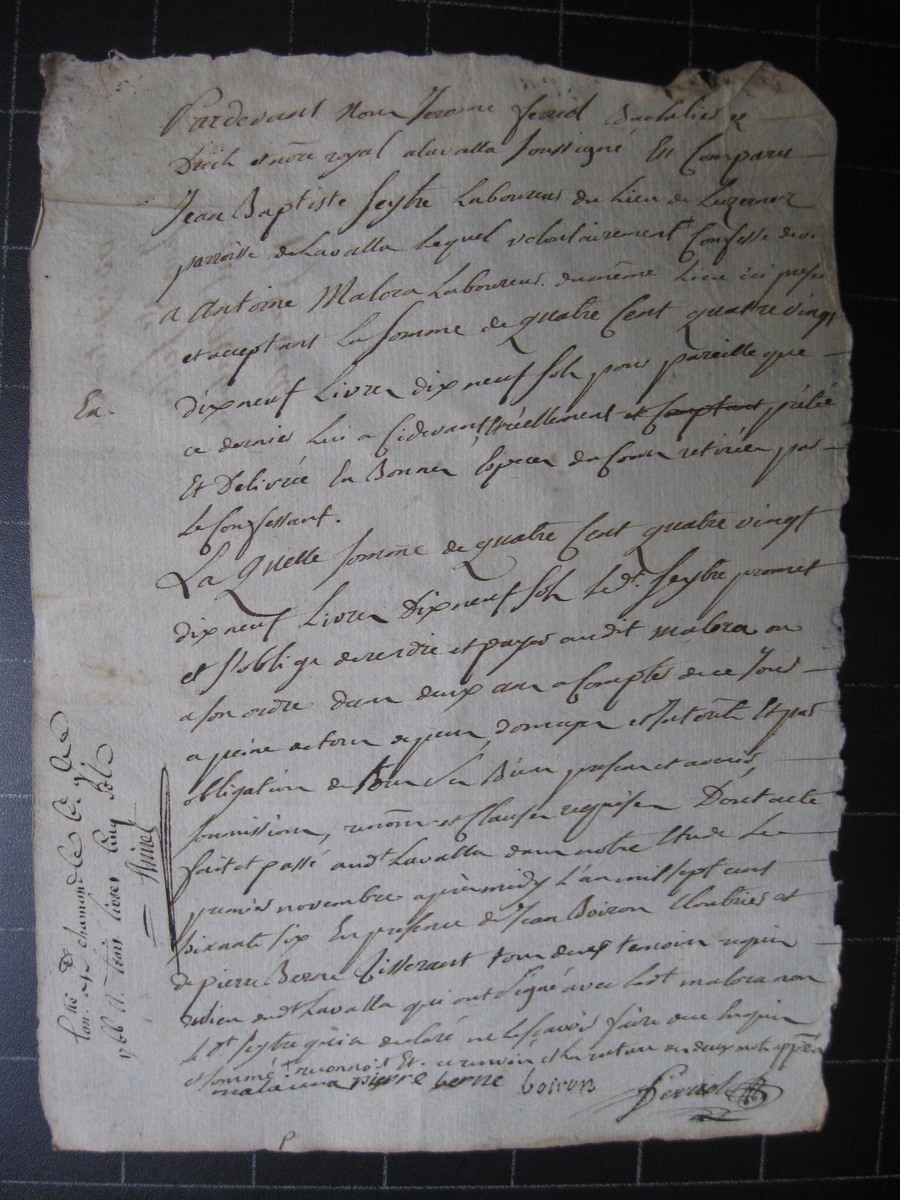 Pardevant Nous Jerome ferriol Bachelier e
Droit et nore royal a lavalla soussigné Est Comparu
Jean Baptiste Seytre Laboureur du lieu de Luzernod
parroisse de Lavalla Lequel volontairement Confesse devo
a Antoine Malora Laboureur du même Lieu ici prese
et acceptant La Somme de quatre Cent quattre vingt
dix neuf Livres dix neuf sols pour pareille que
Ea.
ce dernier lui a Cidevant réellement et Comptant prêté
Et Delivrée En Bonnes Especes du Cours retirées par
le Confessant.
La Quelle somme de quatre Cent quatre vingt
dix neuf Livres Dix neuf sols led.t Seytre promet
et s'oblige de rendre et payer audit malora ou
a son ordre dans deux ans a Compter de ce Jour
a peine de tous depens, domages et Interêts Et par
obligation de tous ses Biens presens et avenir,
soumissions, renon et Clauses requises Dont acte
fait et passé aud.t Lavalla dans notre Etude Le
premier novembre après midy L'an mil sept cent
soixante six En presence de Jean Boiron Cloutrier et
de pierre Berne Tisserant tous deux temoins requis
dud.t Lavalla qui ont signé avec led.t malora non
le d.t Seytre qui a declaré ne le sçavoir faire de ce Enquis
et sommé reconnoit Et ce renvoi et la rature de deux mots appre
malora pierre berne boiron ferriol
trois livres Cinq sols